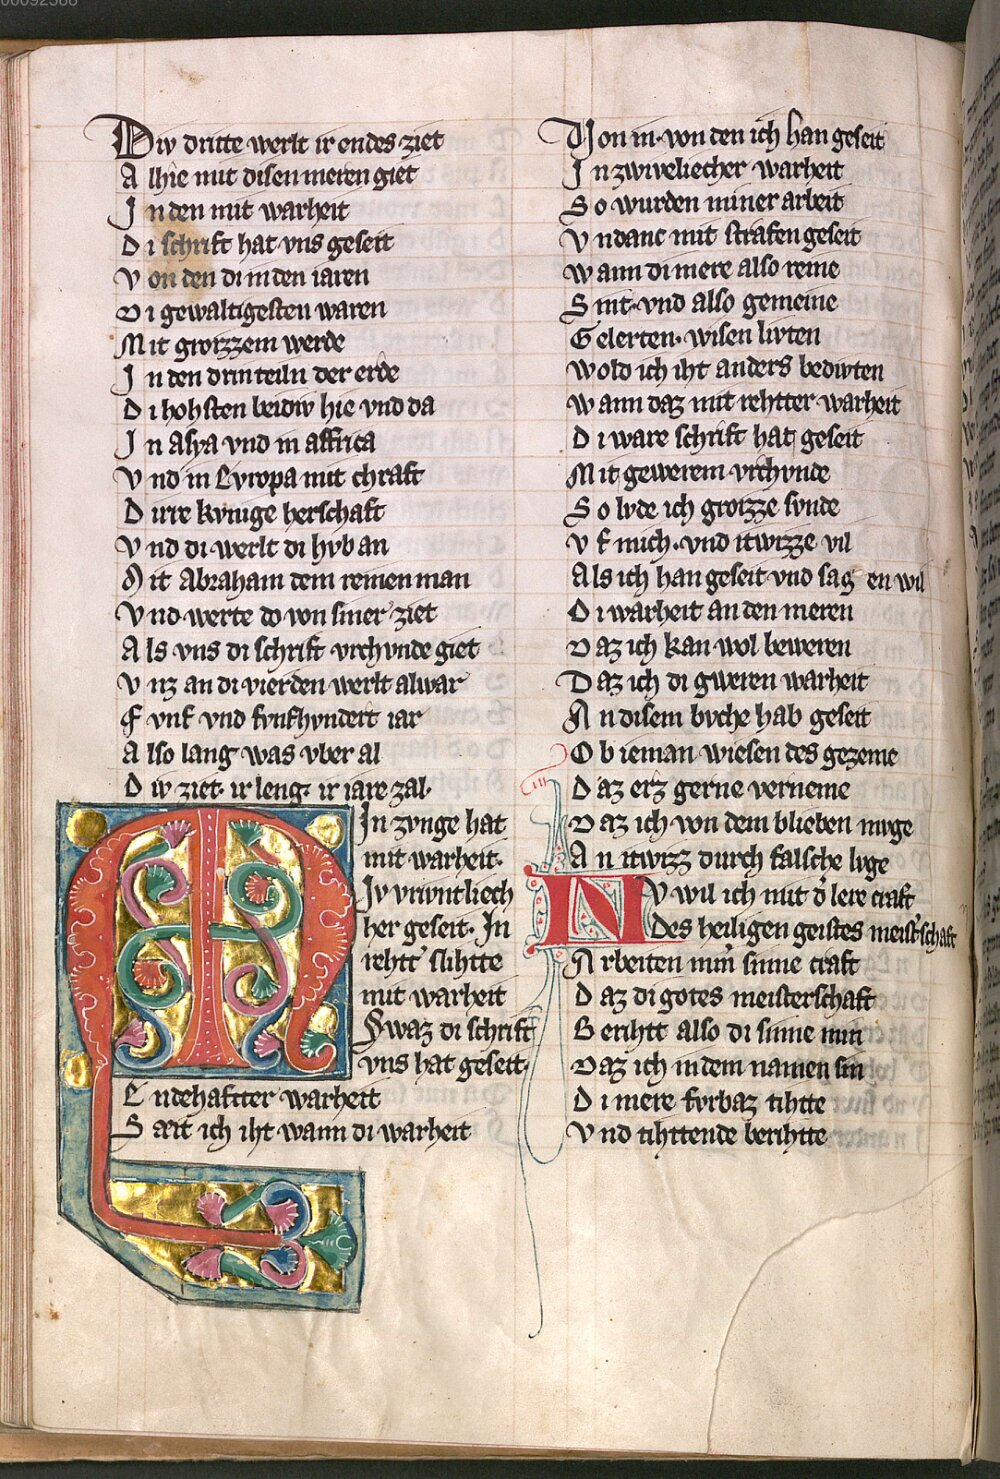 00092568
Div dritte werlt ir endes ziet
Alhie mit disen meren giet
In den mit warheit
Di schrift hat vns geseit
Von den di in den iaren
Di gewaltigesten waren
Mit groizzem werde
In den drin teiln der erde
Di hohsten beidiv hie vnd da
In asya vnd in affrica
Vnd in Evropa mit chraft
Dirre kvnige herschaft
Vnd di werlt di hvb an
Mit Abraham dem reinen man
Vnd werte do von siner ziet
Als vns di schrift vrchvnde giet
Vnz an di vierden werlt alwar
Fvnf vnd fvnfhvndert iar
Also lang was vber al
Div ziet· ir leng· ir iare zal·
Min zvnge hat
mit warheit·
Iv vrivntliech
her geseit· In
rehtt͛ slihtte
mit warheit
Swaz di schrift
vns hat geseit·
Endehaftter warheit
Seit ich iht wann di warheit
Von in· von den ich han geseit
In zwiveliecher warheit
So wurden miner arbeit
Vndanc mit strafen geseit
Wann di mere also reine
Sint· vnd also gemeine
Gelerten· wisen livten
Wold ich iht anders bedivten
Wann daz mit rehtter warheit
Di ware schrift hat geseit
Mit gewerem vrchvnde
So lvde ich groizze svnde
Vf mich· vnd itwizze vil
Als ich han geseit vnd sagen wil
Di warheit an den meren
Daz ich kan wol beweren
Daz ich di gweren warheit
An disem bvche hab geseit
Ob ieman wiesen des gezeme
Daz erz gerne verneme
Daz ich von dem blieben mvge
An itwizz durch falsche lvge
NV wil ich mit d͛ lere craft
Des heiligen geistes meist͛schaft
Arbeiten min͛ sinne craft
Daz di gotes meisterschaft
Berihtt also di sinne min
Daz ich in dem namen sin
Di mere fvrbaz tihtte
Vnd tihttende berihtte